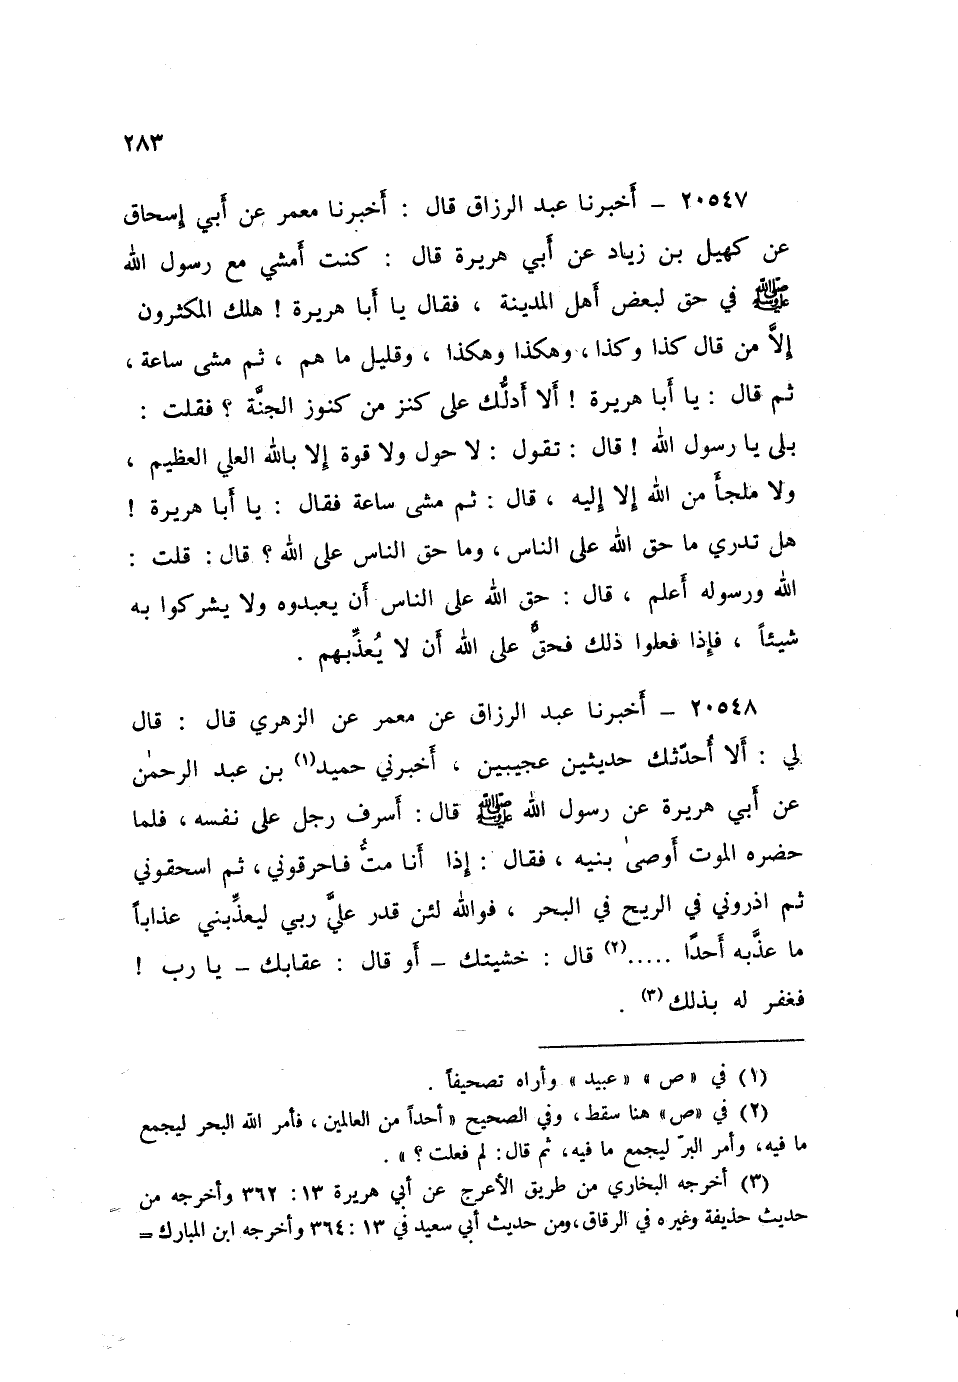 ٢٨٣
٢٠٥٤٧ – أَخبرنا عبد الرزاق قال : أَخبرنا معمر عن أَبي إِسحاق
عن كهيل بن زياد عن أَبي هريرة قال : كنت أَمشي مع رسول الله
ﷺ في حق لبعض أَهل المدينة ، فقال يا أَبا هريرة ! هلك المكثرون
إِلاَّ من قال كذا وكذا ، وهكذا وهكذا ، وقليل ما هم ، ثم مشى ساعة ،
ثم قال : يا أَبا هريرة ! أَلا أَدلُّك على كنز من كنوز الجنَّة ؟ فقلت :
بلى يا رسول الله ! قال : تقول : لا حول ولا قوة إِلا بالله العلي العظيم ،
ولا ملجأَ من الله إِلا إِليه ، قال : ثم مشى ساعة فقال : يا أَبا هريرة !
هل تدري ما حق الله على الناس ، وما حق الناس على الله ؟ قال : قلت :
الله ورسوله أَعلم ، قال : حق الله على الناس أَن يعبدوه ولا يشركوا به
شيئاً ، فإِذا فعلوا ذلك فحقٌّ على الله أَن لا يُعذِّبهم .
٢٠٥٤٨ – أَخبرنا عبد الرزاق عن معمر عن الزهري قال : قال
لي : أَلا أُحدّثك حديثين عجيبين ، أَخبرني حميد(١) بن عبد الرحمٰن
عن أَبي هريرة عن رسول الله ﷺ قال : أَسرف رجل على نفسه ، فلما
حضره الموت أَوصىٰ بنيه ، فقال : إِذا أَنا متُّ فاحرقوني ، ثم اسحقوني
ثم اذروني في الريح في البحر ، فوالله لئن قدر عليَّ ربي ليعذِّبني عذاباً
ما عذَّبه أَحدًا .....(٢) قال : خشيتك – أَو قال : عقابك – يا رب !
فغفر له بذلك(٣) .
(١) في «ص» «عبيد» وأراه تصحيفاً .
(٢) في «ص» هنا سقط ، وفي الصحيح «أحداً من العالمين ، فأمر الله البحر ليجمع
ما فيه ، وأمر البرّ ليجمع ما فيه ، ثم قال : لم فعلت ؟ » .
(٣) أخرجه البخاري من طريق الأعرج عن أبي هريرة ١٣ : ٣٦٢ وأخرجه من
حديث حذيفة وغيره في الرقاق ، ومن حديث أبي سعيد في ١٣ : ٣٦٤ وأخرجه ابن المبارك =